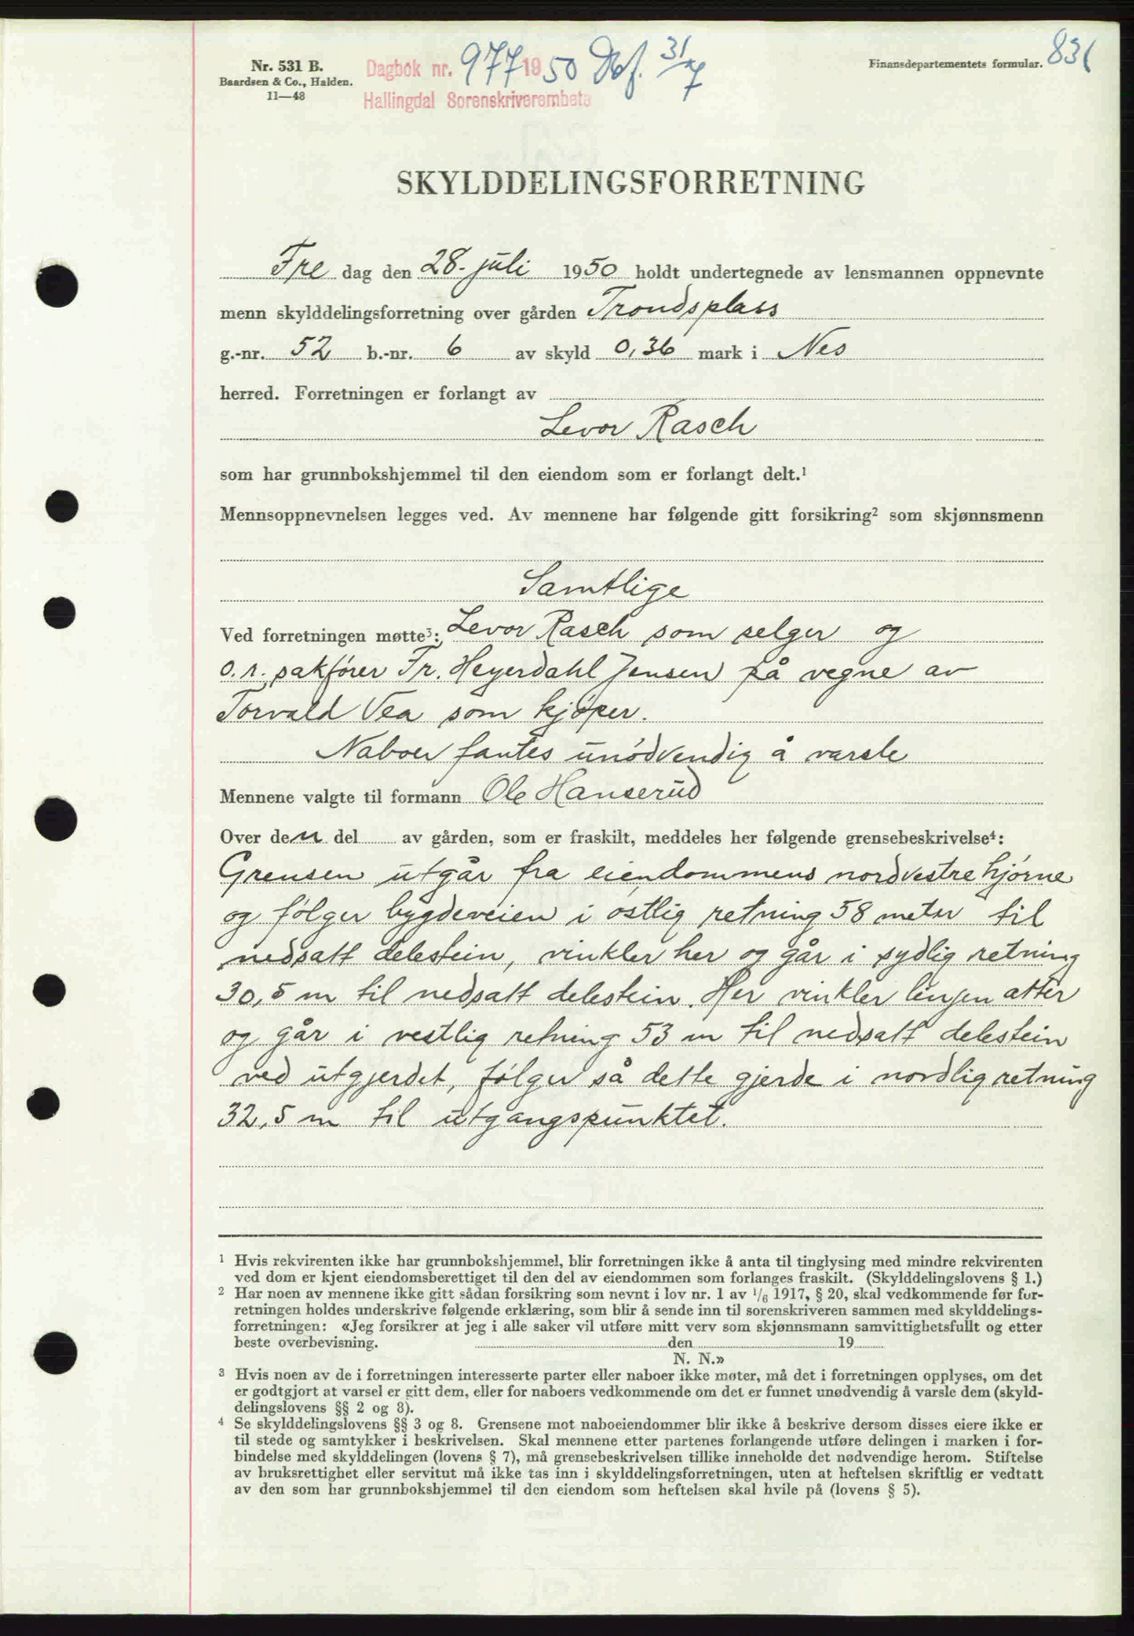 Nr. 531 B.
Baardsen & Co., Halden.
11—48
Dagbok nr. 977 1950 Dbf. 31/7
Hallingdal Sorenskriverembete
Finansdepartementets formular. 831
SKYLDDELINGSFORRETNING
Fre dag den 28. juli 1950 holdt undertegnede av lensmannen oppnevnte
menn skylddelingsforretning over gården Trondsplass
g.-nr. 52 b.-nr. 6 av skyld 0,36 mark i Nes
herred. Forretningen er forlangt av
Levor Rasch
som har grunnbokshjemmel til den eiendom som er forlangt delt.¹
Mennsoppnevnelsen legges ved. Av mennene har følgende gitt forsikring² som skjønnsmenn
Samtlige
Ved forretningen møtte³: Levor Rasch som selger og
o.r. sakfører Fr. Heyerdahl Jensen på vegne av
Torvald Vea som kjøper.
Naboer fantes unødvendig å varsle
Mennene valgte til formann Ole Hanserud
Over den del av gården, som er fraskilt, meddeles her følgende grensebeskrivelse⁴:
Grensen utgår fra eiendommens nordvestre hjørne
og følger bygdeveien i østlig retning 58 meter til
nedsatt delestein, vinkler her og går i sydlig retning
30,5 m til nedsatt delestein. Her vinkler linjen atter
og går i vestlig retning 53 m til nedsatt delestein
ved utgjerdet, følger så dette gjerde i nordlig retning
32,5 m til utgangspunktet.
¹ Hvis rekvirenten ikke har grunnbokshjemmel, blir forretningen ikke å anta til tinglysing med mindre rekvirenten
ved dom er kjent eiendomsberettiget til den del av eiendommen som forlanges fraskilt. (Skylddelingslovens § 1.)
² Har noen av mennene ikke gitt sådan forsikring som nevnt i lov nr. 1 av 1/6 1917, § 20, skal vedkommende før for-
retningen holdes underskrive følgende erklæring, som blir å sende inn til sorenskriveren sammen med skylddelings-
forretningen: «Jeg forsikrer at jeg i alle saker vil utføre mitt verv som skjønnsmann samvittighetsfullt og etter
beste overbevisning. den 19
N. N.»
³ Hvis noen av de i forretningen interesserte parter eller naboer ikke møter, må det i forretningen opplyses, om det
er godtgjort at varsel er gitt dem, eller for naboers vedkommende om det er funnet unødvendig å varsle dem (skyld-
delingslovens §§ 2 og 8).
⁴ Se skylddelingslovens §§ 3 og 8. Grensene mot naboeiendommer blir ikke å beskrive dersom disses eiere ikke er
til stede og samtykker i beskrivelsen. Skal mennene etter partenes forlangende utføre delingen i marken i for-
bindelse med skylddelingen (lovens § 7), må grensebeskrivelsen tillike inneholde det nødvendige herom. Stiftelse
av bruksrettighet eller servitut må ikke tas inn i skylddelingsforretningen, uten at heftelsen skriftlig er vedtatt
av den som har grunnbokshjemmel til den eiendom som heftelsen skal hvile på (lovens § 5).